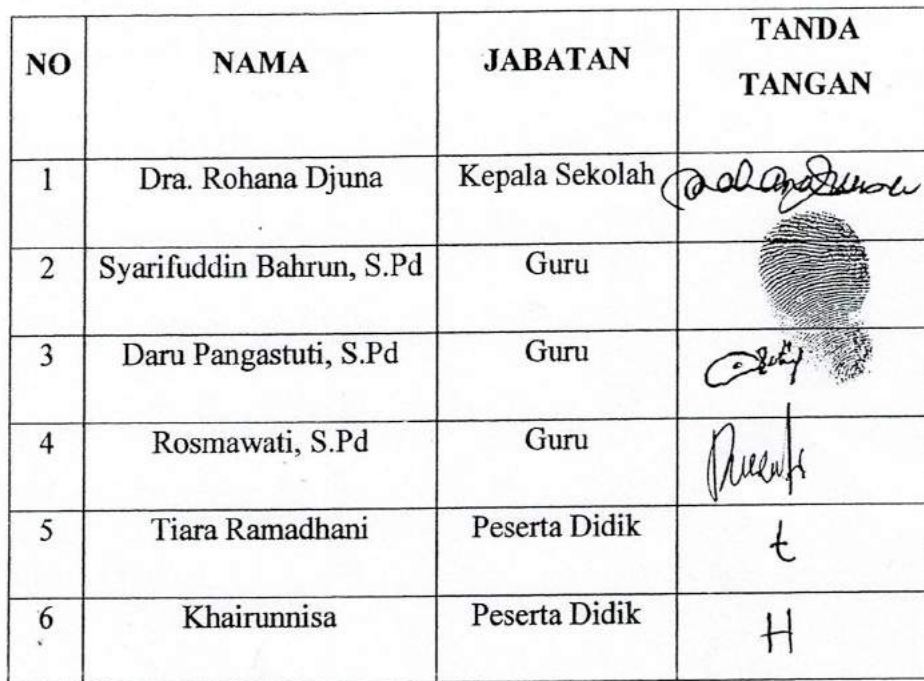 NO NAMA JABATAN TANDA TANGAN
1 Dra. Rohana Djuna Kepala Sekolah
2 Syarifuddin Bahrun, S.Pd Guru
3 Daru Pangastuti, S.Pd Guru
4 Rosmawati, S.Pd Guru
5 Tiara Ramadhani Peserta Didik t
6 Khairunnisa Peserta Didik H